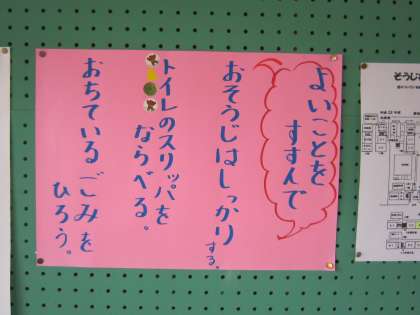 よいことを
すすんで
おそうじはしっかり
する。
トイレのスリッパを
ならべる。
おちているごみを
ひろう。
そうじ